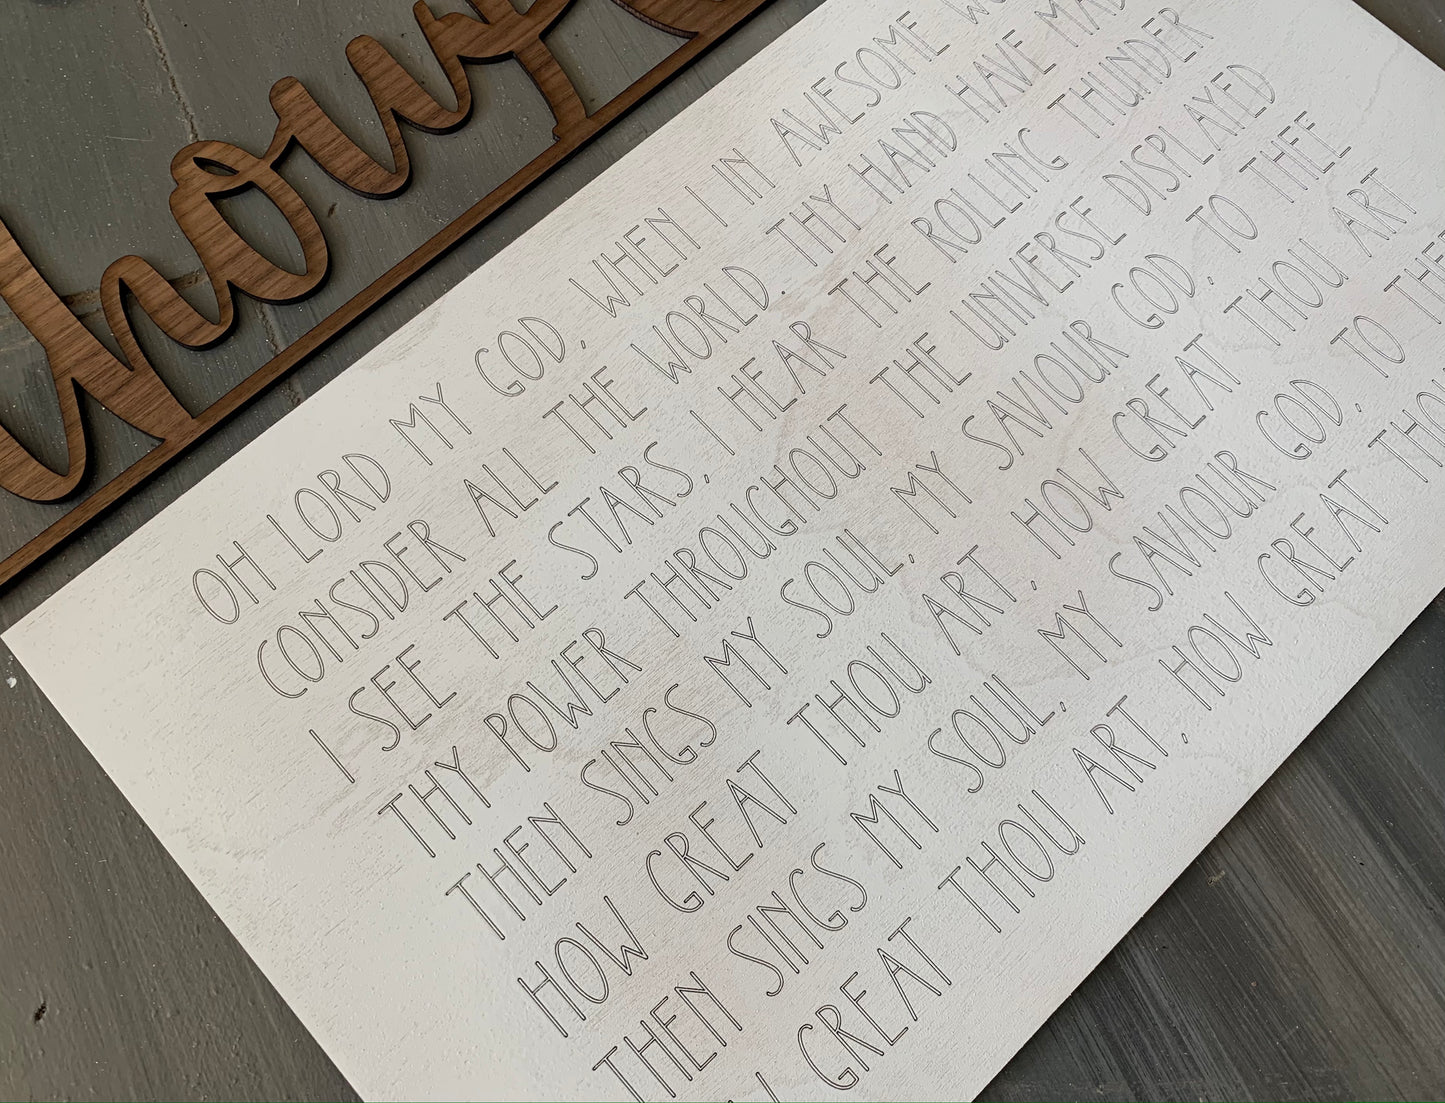 how
OH LORD MY GOD, WHEN I IN AWESOME
CONSIDER ALL THE WORLD. THY HAND HAVE MAD
I SEE THE STARS, I HEAR THE ROLLING THUNDER
THY POWER THROUGHOUT THE UNIVERSE DISPLAYED
THEN SINGS MY SOUL, MY SAVIOUR GOD, TO THEE
HOW GREAT THOU ART, HOW GREAT THOU ART
THEN SINGS MY SOUL, MY SAVIOUR GOD, TO THE
GREAT THOU ART, HOW GREAT THOU